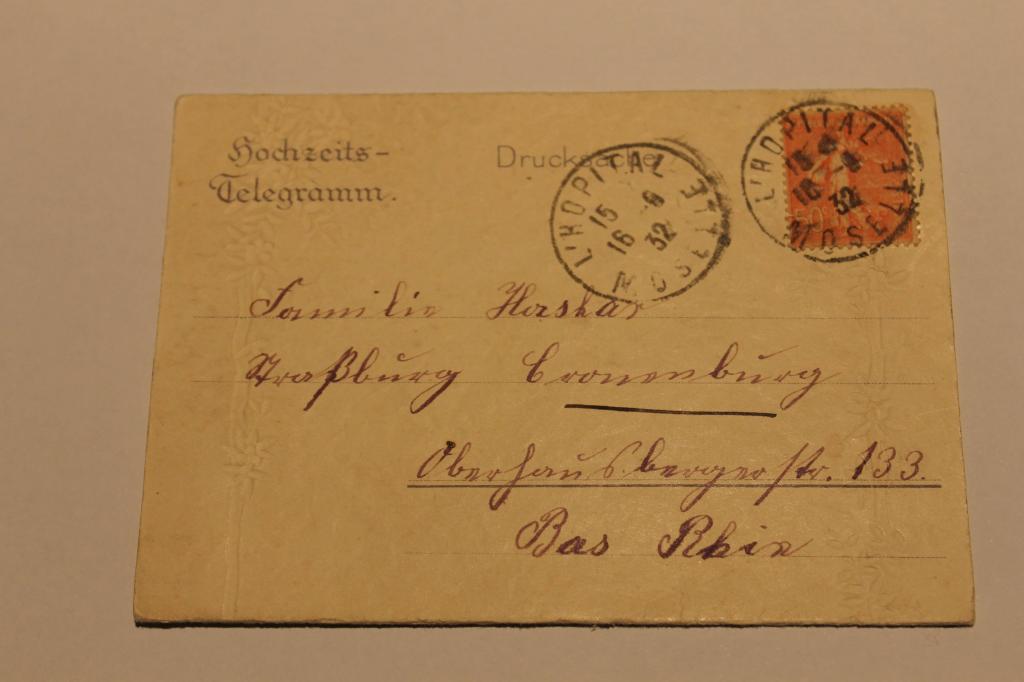 Hochzeits-
Telegramm.
Drucksache
L'HOPITAL
15 -8
16 32
MOSELLE
L'HOPITAL
15 -8
16 32
MOSELLE
50
Familie Haskar
Straßburg Cronenburg
Oberhausbergerstr. 133.
Bas Rhin